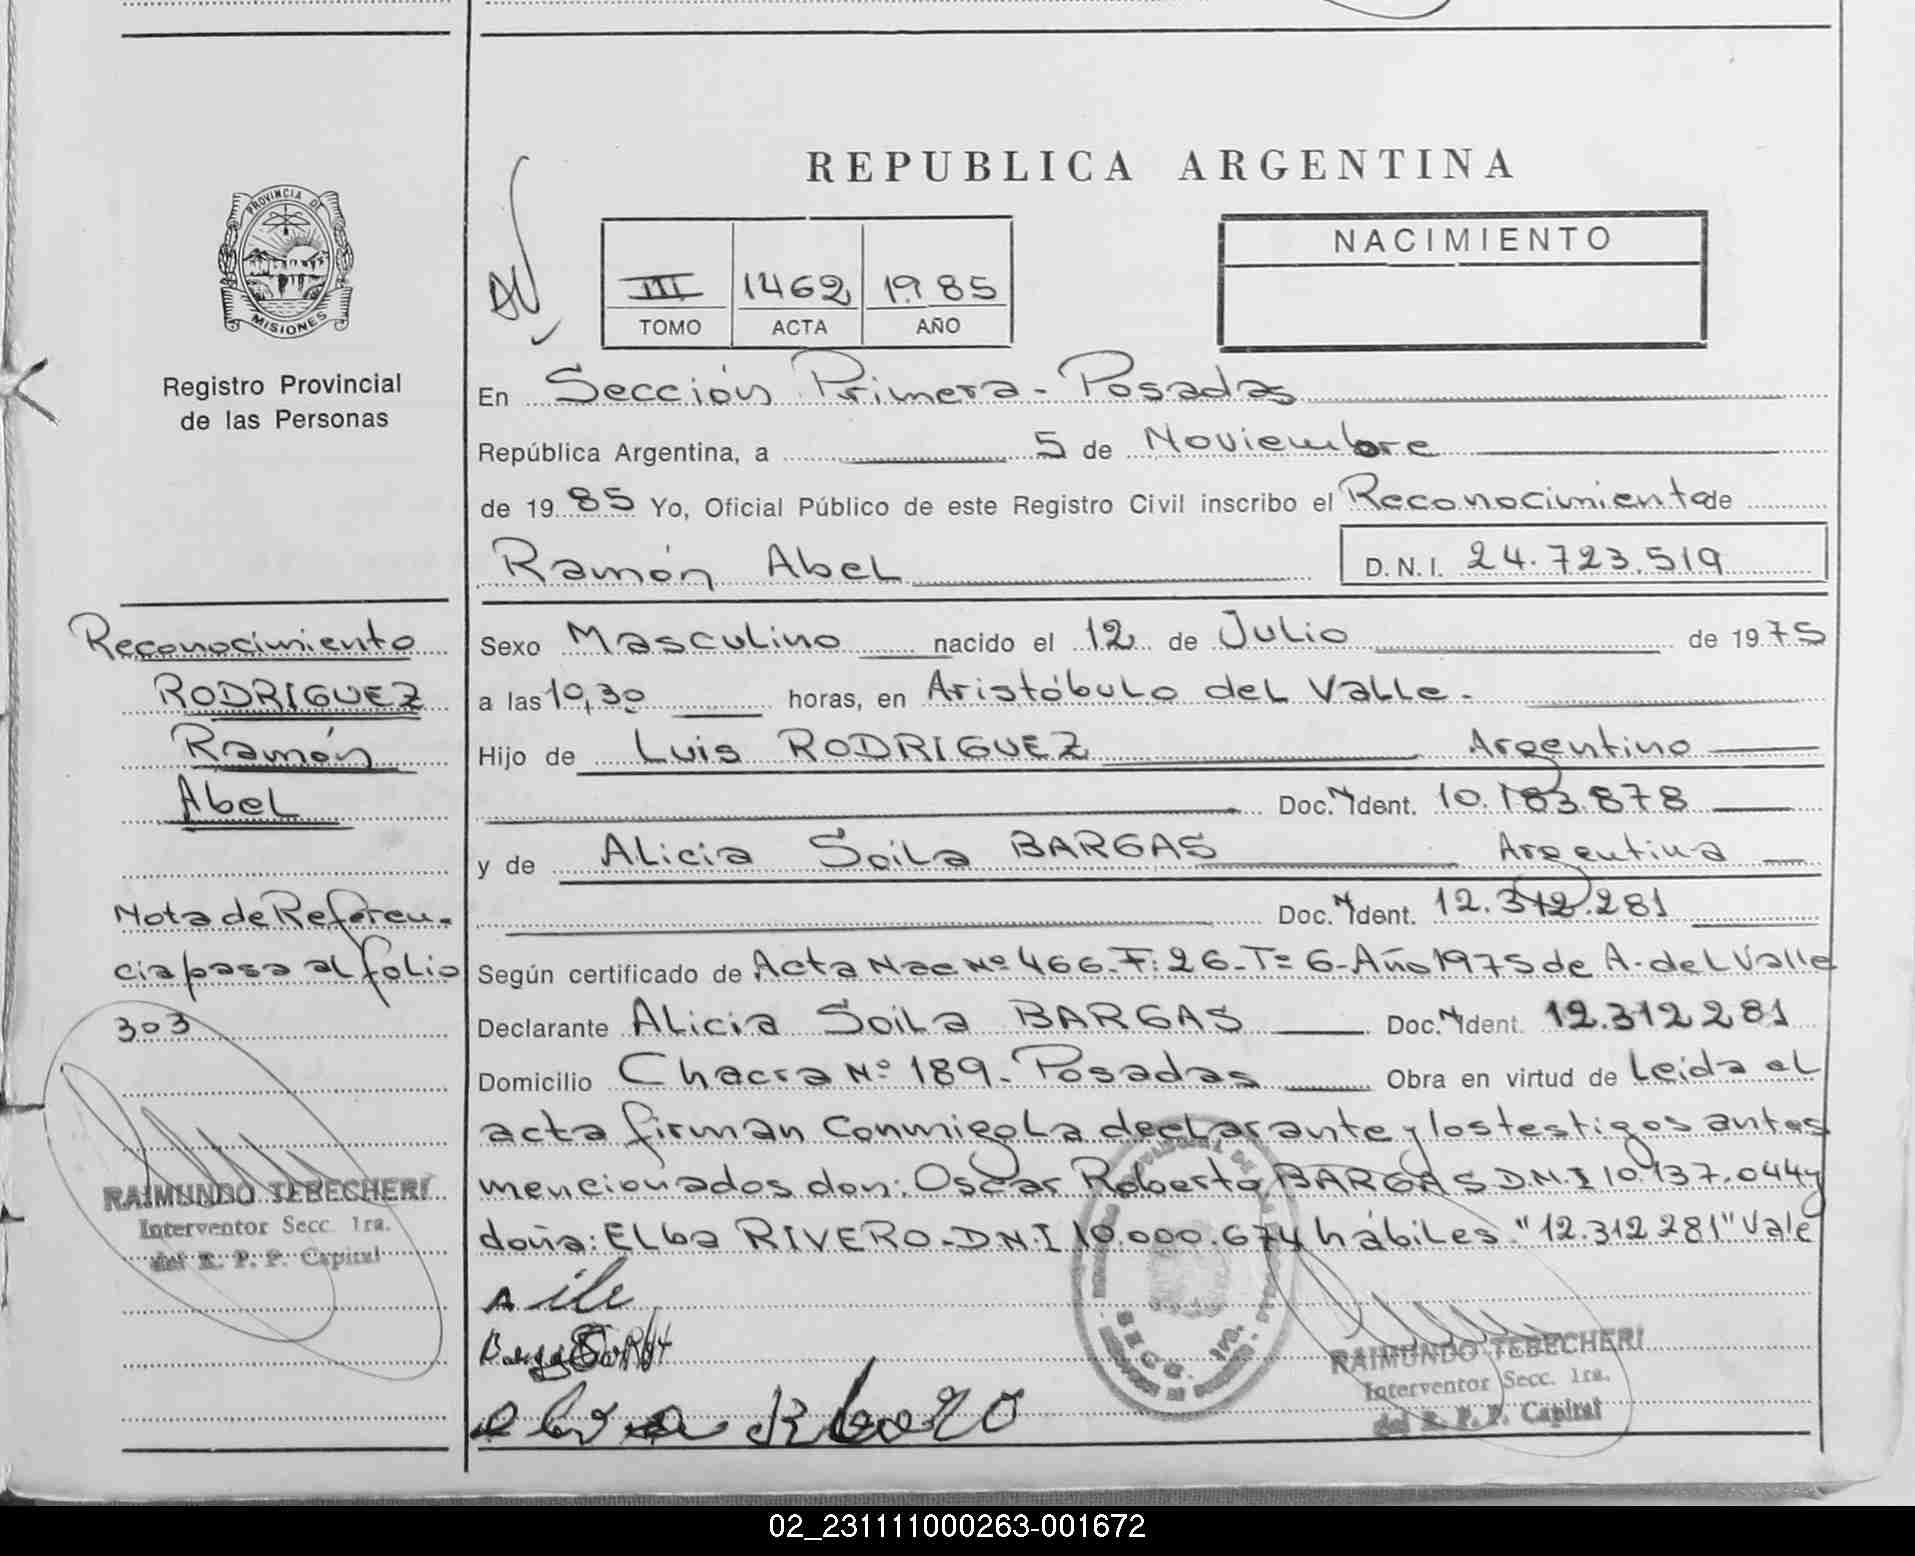 REPUBLICA ARGENTINA
PROVINCIA DE
MISIONES
Registro Provincial
de las Personas
III 1462 1985
TOMO ACTA AÑO
NACIMIENTO
En Sección Primera - Posadas
República Argentina, a 5 de Noviembre
de 1985 Yo, Oficial Público de este Registro Civil inscribo el Reconocimiento de
Ramón Abel D.N.I. 24.723.519
Sexo Masculino nacido el 12 de Julio de 1975
a las 10,30 horas, en Aristóbulo del Valle.
Hijo de Luis RODRIGUEZ Argentino
Doc. Ident. 10.183.878
y de Alicia Soila BARGAS Argentina
Doc. Ident. 12.312.281
Según certificado de Acta Nac Nº 466-F:26-Tº 6-Año 1975 de A. del Valle
Declarante Alicia Soila BARGAS Doc. Ident. 12.312281
Domicilio Chacra Nº 189- Posadas Obra en virtud de Leida el
acta firman conmigo La declarante y los testigos antes
mencionados don: Oscar Roberto BARGAS D.N.I 10.137.044 y
doña: Elba RIVERO-D.N.I 10.000.674 hábiles "12.312281" Vale
Reconocimiento
RODRIGUEZ
Ramón
Abel
Nota de Referen-
cia pasa al folio
303
RAIMUNDO TEBECHERI
Interventor Secc. 1ra.
del R. P. P. Capital
SECC. 1ra.
RAIMUNDO TEBECHERI
Interventor Secc. 1ra.
del R. P. P. Capital
02_231111000263-001672